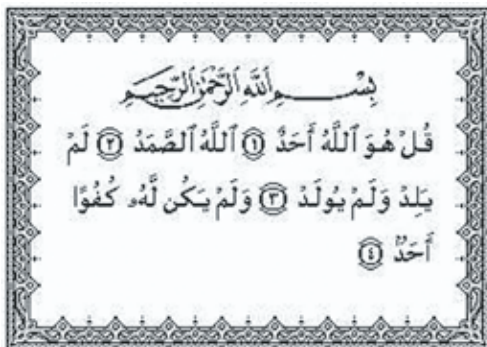 بِسْمِ ٱللَّهِ ٱلرَّحْمَٰنِ ٱلرَّحِيمِ
قُلْ هُوَ ٱللَّهُ أَحَدٌ ١ ٱللَّهُ ٱلصَّمَدُ ٢ لَمْ
يَلِدْ وَلَمْ يُولَدْ ٣ وَلَمْ يَكُن لَّهُۥ كُفُوًا
أَحَدٌۢ ٤